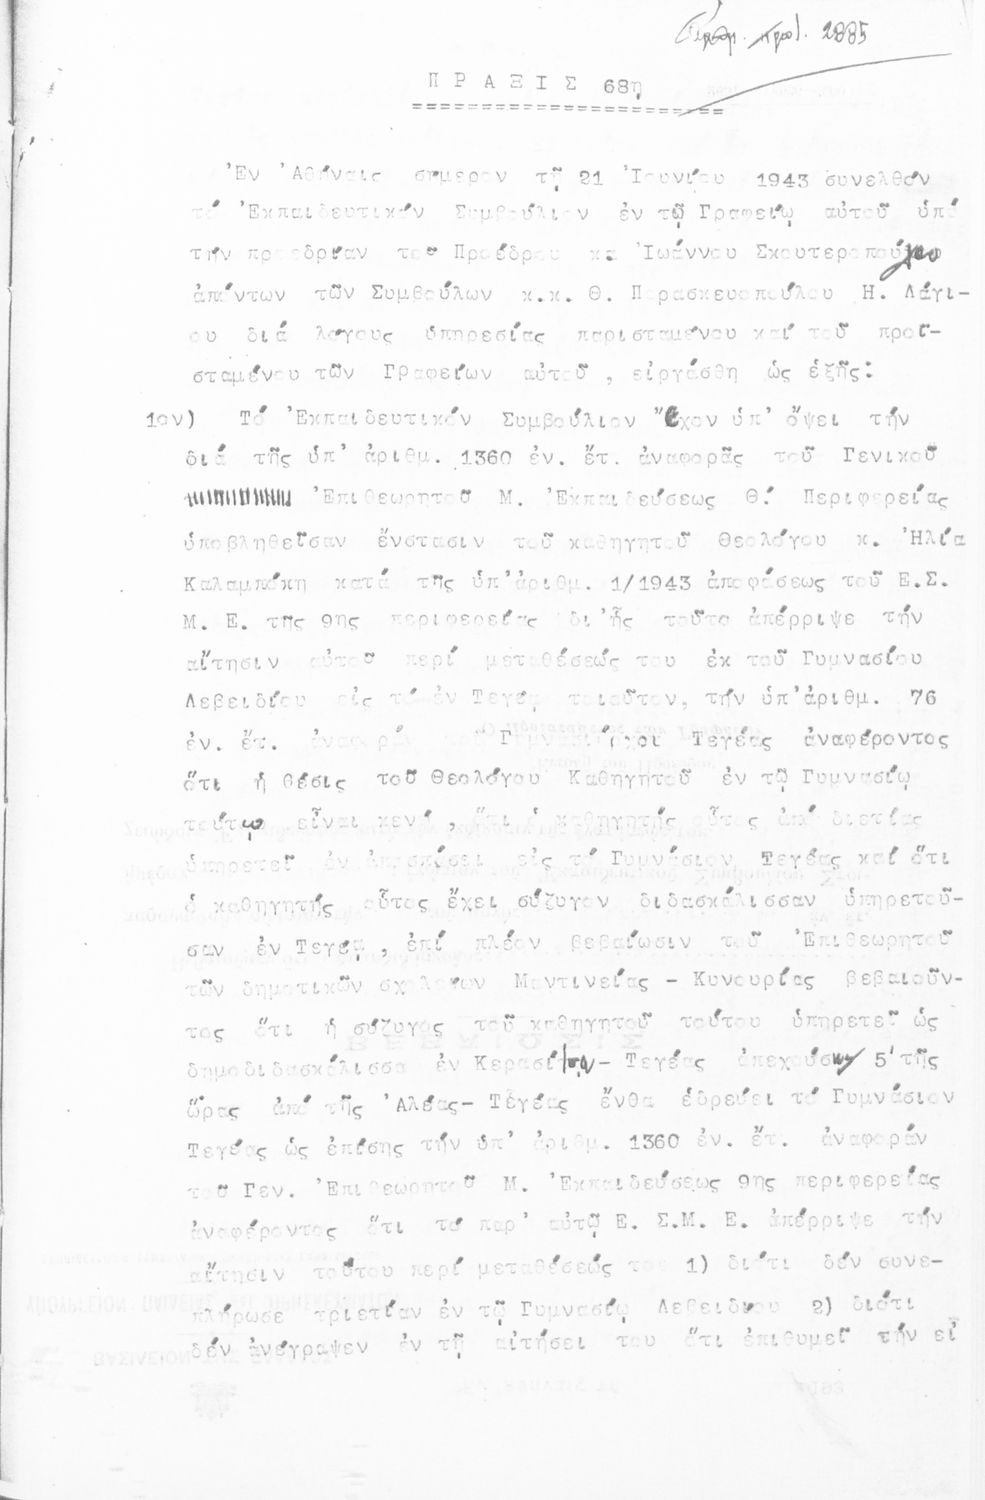 2885
ΠΡΑΞΙΣ 68η
Ἐν Ἀθήναις σήμερον τῇ 21 Ἰουνίου 1943 συνελθόν
τό Ἐκπαιδευτικόν Συμβούλιον ἐν τῷ Γραφείῳ αὐτοῦ ὑπό
τήν προεδρίαν τοῦ Προέδρου κ. Ἰωάννου Σκουτεροπούλου
ἁπάντων τῶν Συμβούλων κ.κ. Θ. Παρασκευοπούλου Η. Λάγι-
ου διά λόγους ὑπηρεσίας παρισταμένου καί τοῦ προϊ-
σταμένου τῶν Γραφείων αὐτοῦ, εἰργάσθη ὡς ἑξῆς:
1ον) Τό Ἐκπαιδευτικόν Συμβούλιον Ἔχον ὑπ' ὄψει τήν
διά τῆς ὑπ' ἀριθμ. 1360 ἐν. ἔτ. ἀναφορᾶς τοῦ Γενικοῦ
Ἐπιθεωρητοῦ Μ. Ἐκπαιδεύσεως Θ.' Περιφερείας
ὑποβληθεῖσαν ἔνστασιν τοῦ καθηγητοῦ Θεολόγου κ. Ἠλία
Καλαμπάκη κατά τῆς ὑπ' ἀριθμ. 1/1943 ἀποφάσεως τοῦ Ε.Σ.
Μ. Ε. της 9ης περιφερείας δι' ἧς τοῦτο ἀπέρριψε τήν
αἴτησιν αὐτοῦ περί μεταθέσεώς του ἐκ τοῦ Γυμνασίου
Λεβειδίου εἰς τό ἐν Τεγέᾳ τοιαῦτον, τήν ὑπ' ἀριθμ. 76
ἐν. ἔτ. ἀναφοράν τοῦ Γυμνασιάρχοι Τεγέας ἀναφέροντος
ὅτι ἡ θέσις τοῦ Θεολόγου Καθηγητοῦ ἐν τῷ Γυμνασίῳ
τούτῳ εἶναι κενή, ὅτι ὁ καθηγητής οὗτος ἀπό διετίας
ὑπηρετεῖ ἐν ἀποσπάσει εἰς τό Γυμνάσιον Τεγέας καί ὅτι
ὁ καθηγητής οὗτος ἔχει σύζυγον διδασκάλισσαν ὑπηρετοῦ-
σαν ἐν Τεγέᾳ, ἐπί πλέον βεβαίωσιν τοῦ Ἐπιθεωρητοῦ
τῶν δημοτικῶν σχολείων Μαντινείας - Κυνουρίας βεβαιοῦν-
τος ὅτι ἡ σύζυγος τοῦ καθηγητοῦ τούτου ὑπηρετεῖ ὡς
δημοδιδασκάλισσα ἐν - Τεγέας ἀπεχούσης 5' τῆς
ὥρας ἀπό τῆς Ἀλέας- Τεγέας ἔνθα ἑδρεύει τό Γυμνάσιον
Τεγέας ὡς ἐπίσης τήν ὑπ' ἀριθμ. 1360 ἐν. ἔτ. ἀναφοράν
τοῦ Γεν. Ἐπιθεωρητοῦ Μ. Ἐκπαιδεύσεως 9ης περιφερείας
ἀναφέροντος ὅτι τό παρ' αὐτῷ Ε. Σ.Μ. Ε. ἀπέρριψε τήν
αἴτησιν τούτου περί μεταθέσεώς του 1) διότι δέν συνε-
πλήρωσε τριετίαν ἐν τῷ Γυμνασίῳ Λεβειδίου 2) διότι
δέν ἀνέγραψεν ἐν τῇ αἰτήσει του ὅτι ἐπιθυμεῖ τήν εἰ